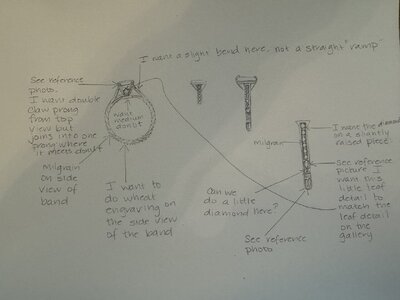 I want a slight bend here, not a straight "ramp"
See reference
photo.
I want double
claw prong
from top
view but
joins into one
prong where
it meets donut
want
medium
donut
milgrain
on side
view of
band
I want to
do wheat
engraving on
the side view
of the band
milgrain
Can we
do a little
diamond here?
See reference
photo
I want the diamond
on a slightly
raised piece
See reference
picture I
want this
little leaf
detail to
match the
leaf detail
on the
gallery